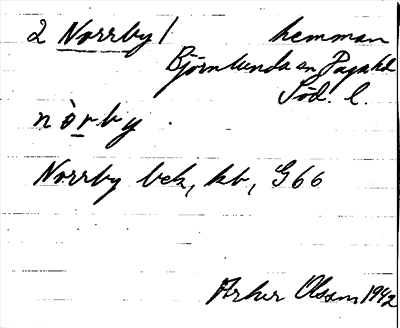 2 Norrby 1 hemman
Björnlunda sn Daga hd
Söd. l.
nò̱rby.
Norrby bek, kb, G66
Arthur Olsson 1942